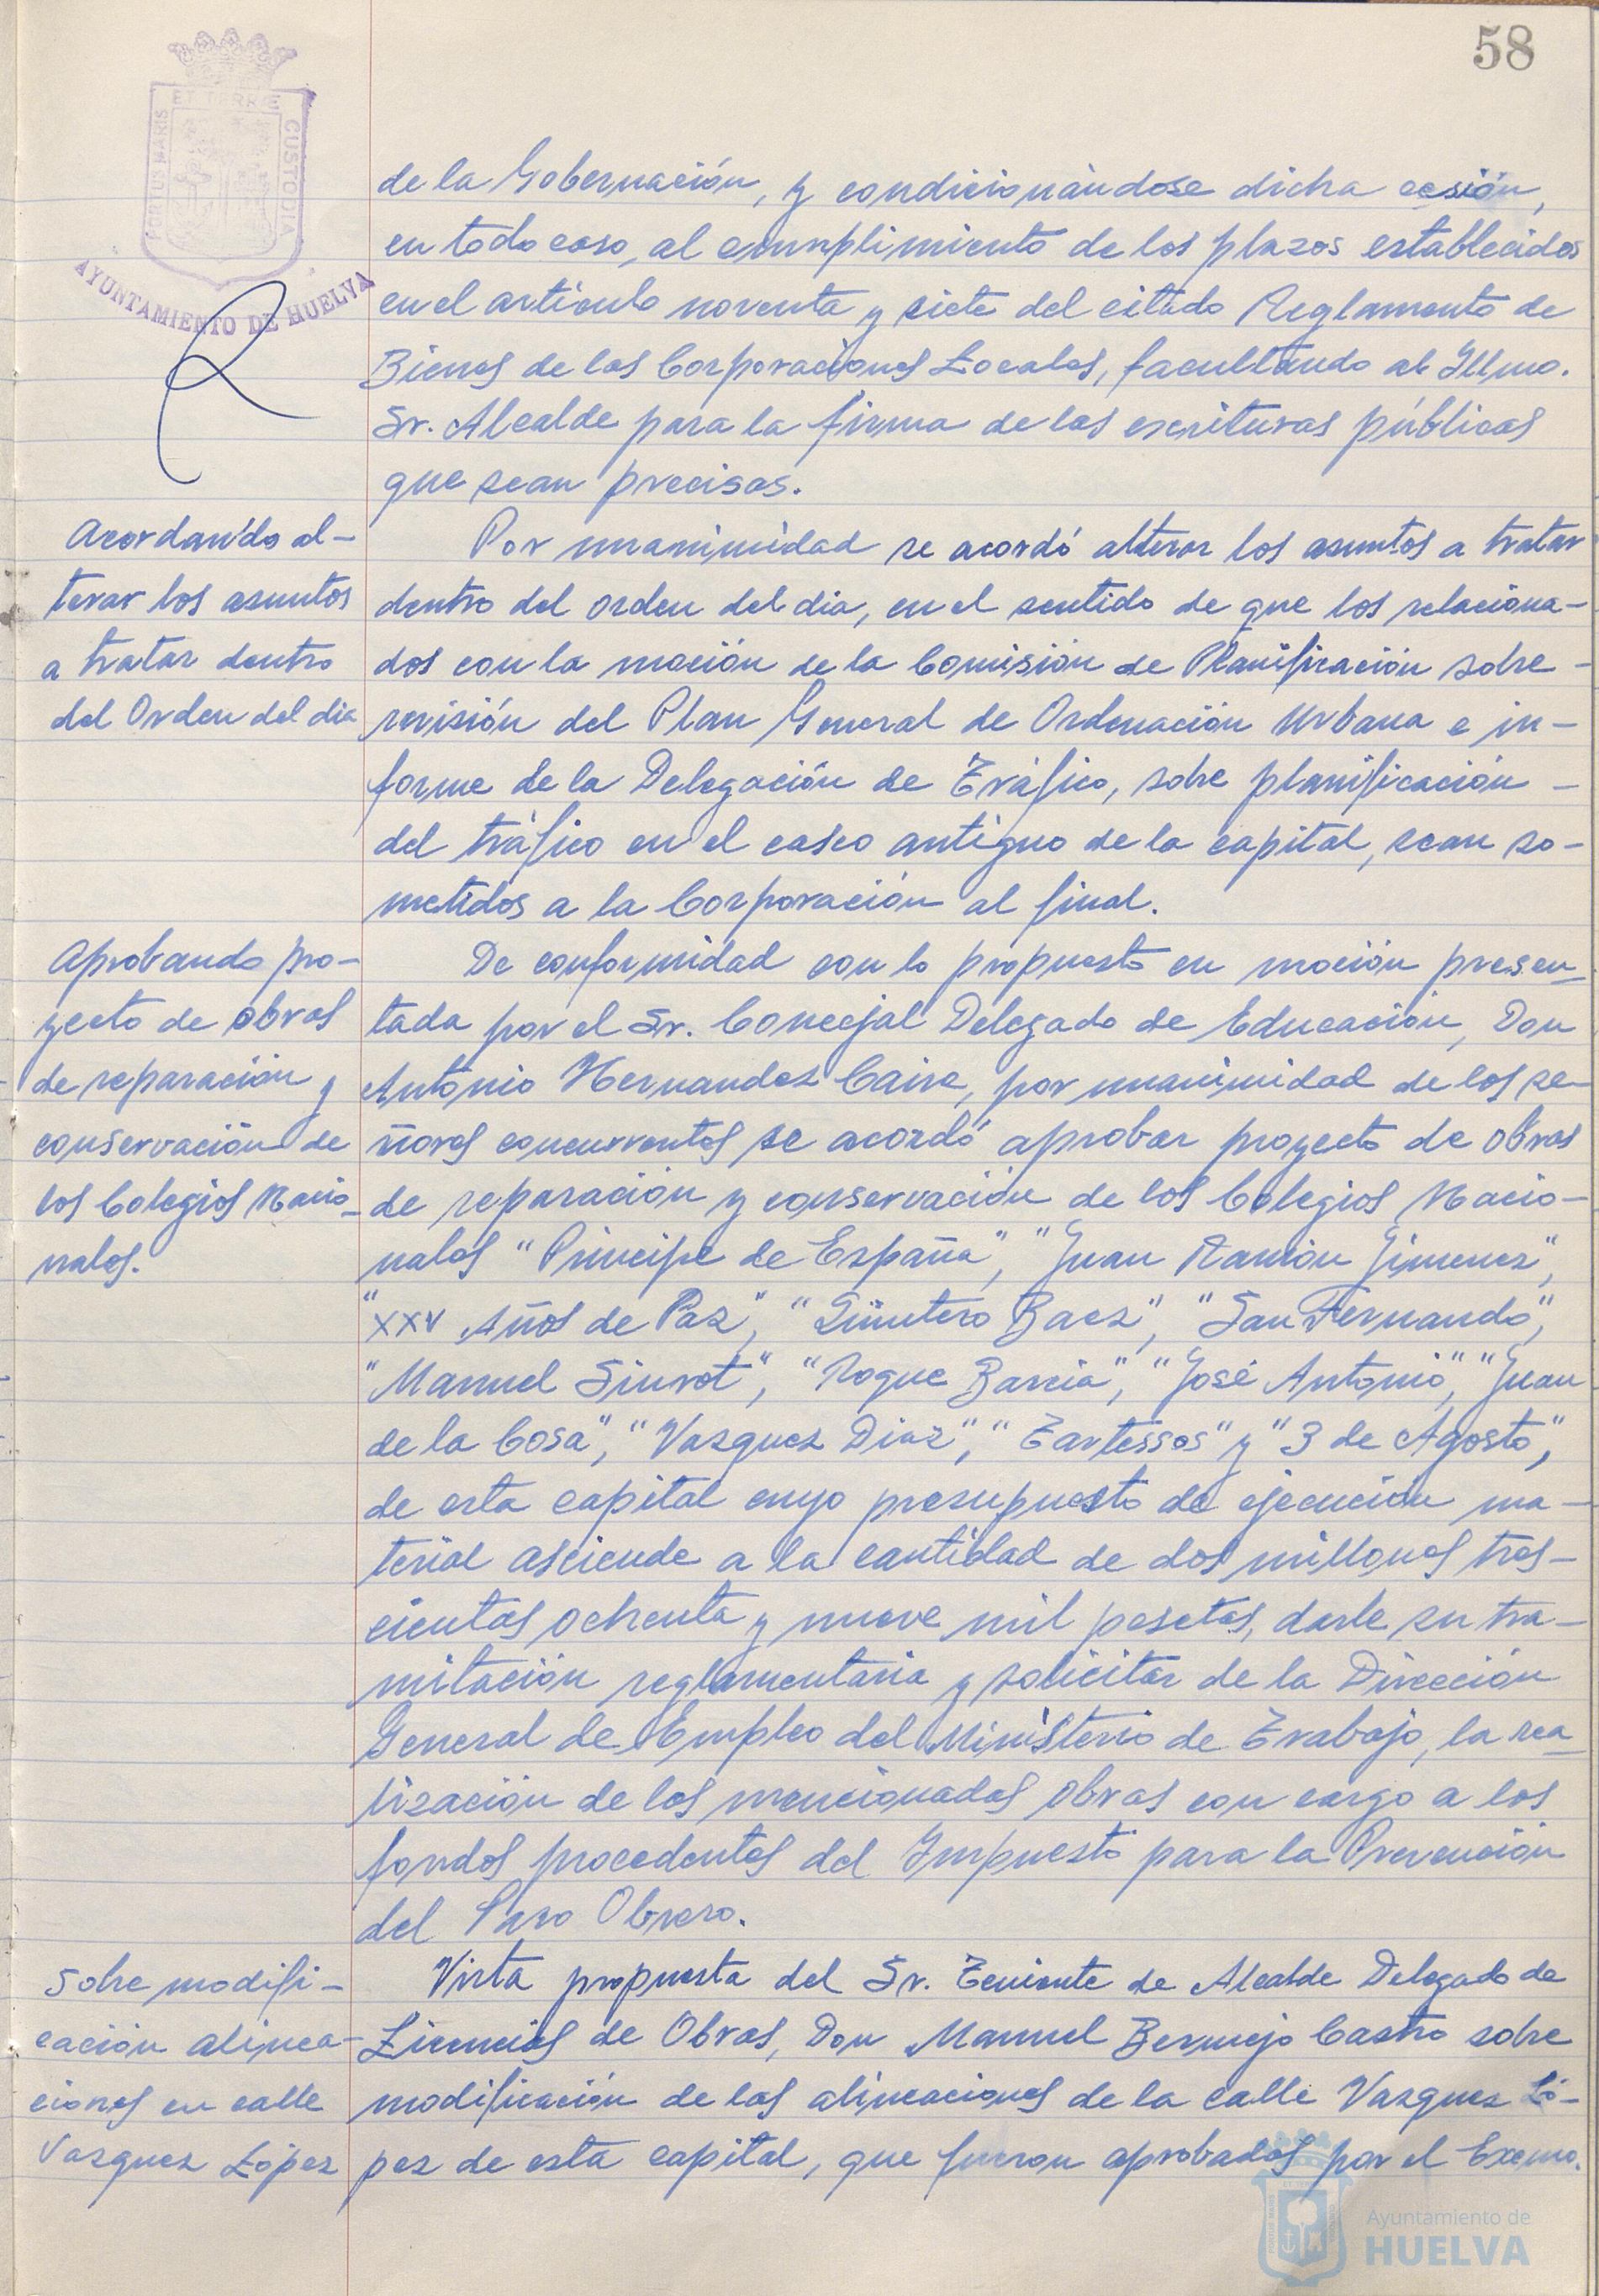 58
PORTUS MARIS
ET TERRE
CUSTODIA
AYUNTAMIENTO DE HUELVA
de la Gobernación, y condicionándose dicha cesión,
en todo caso, al cumplimiento de los plazos establecidos
en el artículo noventa y siete del citado Reglamento de
Bienes de las Corporaciones Locales, facultando al Illmo.
Sr. Alcalde para la firma de las escrituras públicas
que sean precisas.
Acordando al-
terar los asuntos
a tratar dentro
del Orden del dia
Por unanimidad se acordó alterar los asuntos a tratar
dentro del orden del dia, en el sentido de que los relaciona-
dos con la moción de la Comisión de Planificación sobre -
revisión del Plan General de Ordenación Urbana e in-
forme de la Delegación de Tráfico, sobre planificación -
del tráfico en el casco antiguo de la capital, sean so-
metidos a la Corporación al final.
Aprobando pro-
yecto de obras
de reparación y
conservación de
los Colegios Nacio-
nales.
De conformidad con lo propuesto en moción presen-
tada por el Sr. Concejal Delegado de Educación, Don
Antonio Hernandez Caire, por unanimidad de los se-
ñores concurrentes se acordó aprobar proyecto de obras
de reparación y conservación de los Colegios Nacio-
nales "Principe de España", "Juan Ramón Jimenez",
"XXV Años de Paz", "Quintero Baez", "San Fernando",
"Manuel Siurot", "Roque Barcia", "José Antonio", "Juan
de la Cosa", "Vazquez Diaz", "Tartessos" y "3 de Agosto",
de esta capital cuyo presupuesto de ejecución ma-
terial asciende a la cantidad de dos millones tres-
cientas ochenta y nueve mil pesetas, darle su tra-
mitación reglamentaria y solicitar de la Dirección
General de Empleo del Ministerio de Trabajo, la rea-
lización de las mencionadas obras con cargo a los
fondos procedentes del Impuesto para la Prevención
del Paro Obrero.
Sobre modifi-
cación alinea-
ciones en calle
Vazquez López
Vista propuesta del Sr. Teniente de Alcalde Delegado de
Licencias de Obras, Don Manuel Bermejo Castro sobre
modificación de las alineaciones de la calle Vazquez Ló-
pez de esta capital, que fueron aprobadas por el Excmo.
Ayuntamiento de
HUELVA